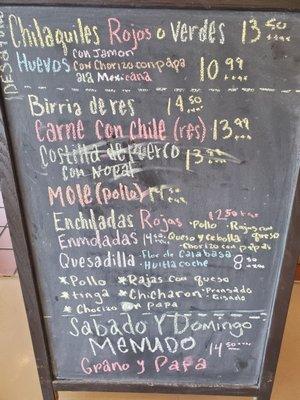 DESAYUNO
Chilaquiles Rojos o Verdes 13.50 +tax
Huevos con Jamon
con Chorizo con papa
ala Mexicana
10.99 +tax
Birria de res 14.50 +tax
Carne con chile (res) 13.99 +tax
Costilla de puerco 13.99
con Nopal
Mole (pollo) 14.50 +tax
Enchiladas Rojas 12.50 +tax
• Pollo • Rajas con queso
Enmoladas 14.50 +tax • Queso y cebolla
• Chorizo con papas
Quesadilla • Flor de Calabasa 8.50 +tax
• Huitlacoche
* Pollo * Rajas con queso
* tinga * Chicharon • Prensado
• Guisado
* Chorizo con papa
Sabado Y Domingo
MENUDO 14.50 +tax
Grano y Pata